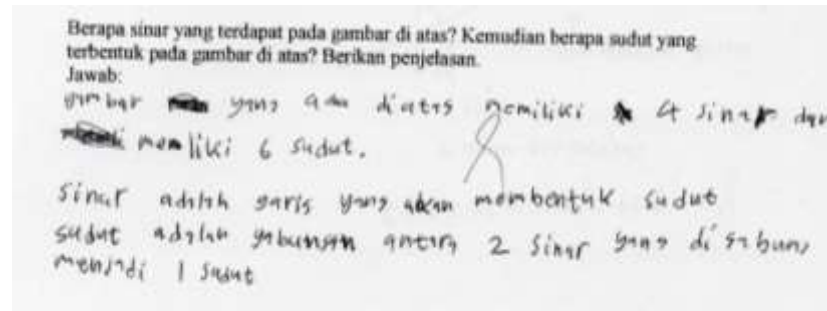 Berapa sinar yang terdapat pada gambar di atas? Kemudian berapa sudut yang
terbentuk pada gambar di atas? Berikan penjelasan.
Jawab:
gambar yang ada diatas memiliki 4 sinar dan
memliki 6 sudut.
sinar adalah garis yang akan membentuk sudut
sudut adalah gabungan antara 2 sinar yang di gabung
menjadi 1 sudut